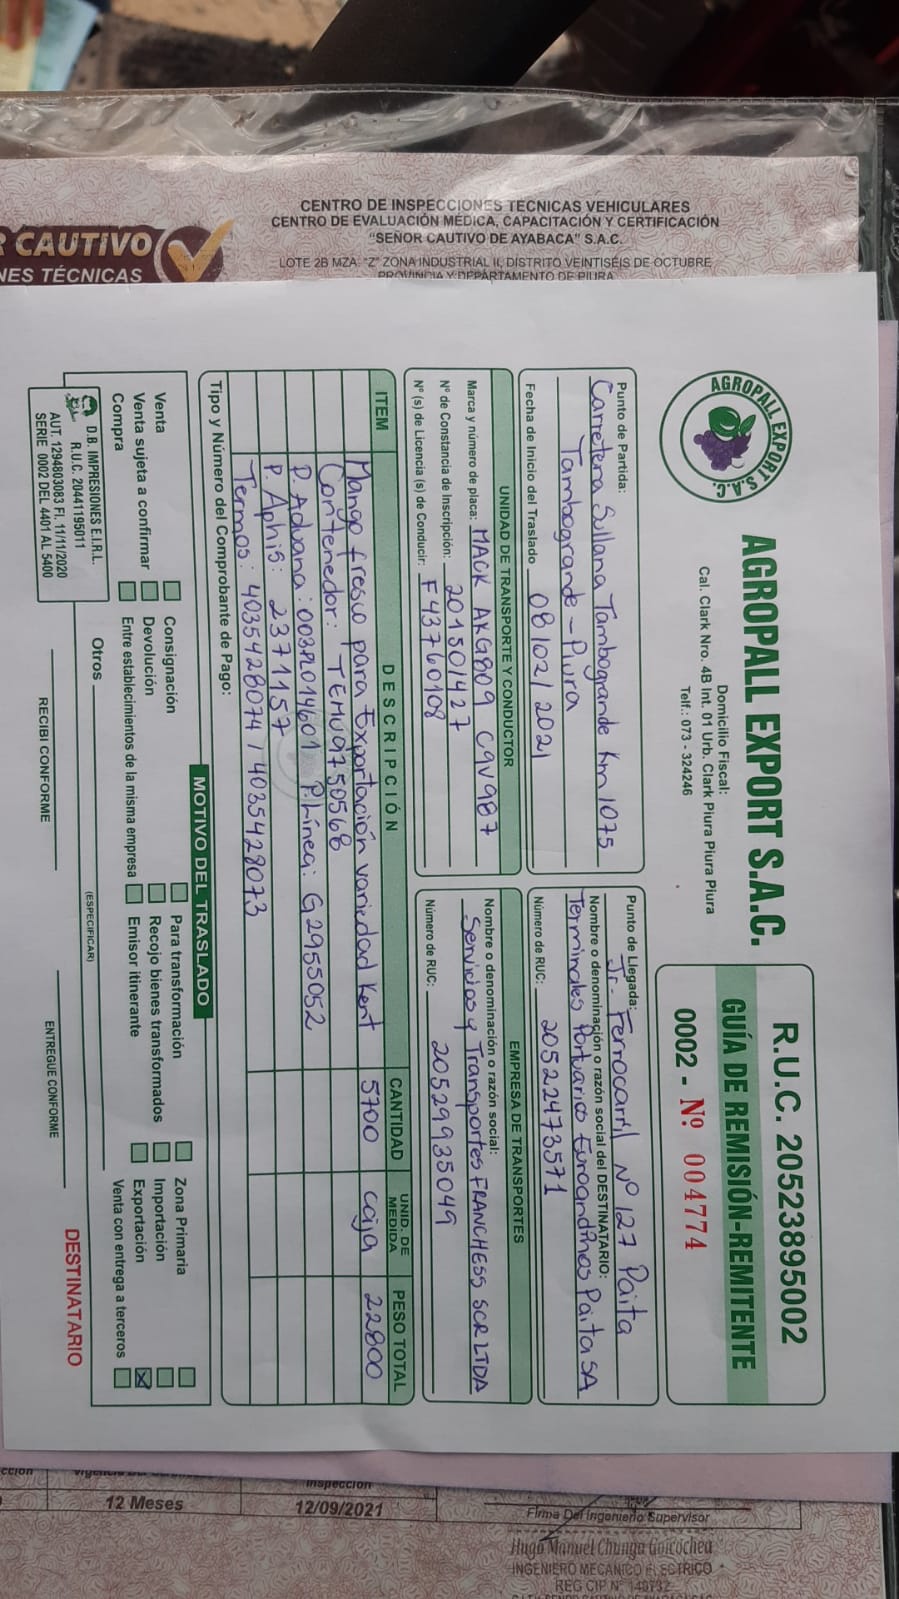 CENTRO DE INSPECCIONES TÉCNICAS VEHICULARES
CENTRO DE EVALUACIÓN MÉDICA, CAPACITACIÓN Y CERTIFICACIÓN
"SEÑOR CAUTIVO DE AYABACA" S.A.C.
LOTE 2B MZA. "Z" ZONA INDUSTRIAL II, DISTRITO VEINTISÉIS DE OCTUBRE
PROVINCIA Y DEPARTAMENTO DE PIURA
R CAUTIVO
NES TÉCNICAS
AGROPALL EXPORT S.A.C.
AGROPALL EXPORT S.A.C.
Domicilio Fiscal:
Cal. Clark Nro. 4B Int. 01 Urb. Clark Piura Piura Piura
Telf.: 073 - 324246
R.U.C. 20523895002
GUÍA DE REMISIÓN-REMITENTE
0002 - Nº 004774
Punto de Partida:
Carretera Sullana Tambogrande Km 1075
Tambogrande - Piura
Fecha de Inicio del Traslado 08/02/2021
Punto de Llegada:
Jr. Ferrocarril Nº 127 Paita
Nombre o denominación o razón social del DESTINATARIO:
Terminales Portuarios Euroandinos Paita SA
Número de RUC: 20522473571
UNIDAD DE TRANSPORTE Y CONDUCTOR
Marca y número de placa: MACK AKG809 CGV987
Nº de Constancia de Inscripción: 201501427
Nº (s) de Licencia (s) de Conducir: F43760108
EMPRESA DE TRANSPORTES
Nombre o denominación o razón social:
Servicios y Transportes FRANCHESS SCRLTDA
Número de RUC: 20529935049
ITEM DESCRIPCIÓN CANTIDAD UNID. DE MEDIDA PESO TOTAL
Mango fresco para Exportación variedad Kent 5700 caja 22800
Contenedor: TEMU9750568
P. Aduana: 003PL014601 P. Línea: G2955052
P. Aphis: 2371157
Termos: 4035428074 / 4035428073
Tipo y Número del Comprobante de Pago:
MOTIVO DEL TRASLADO
Venta
Venta sujeta a confirmar
Compra
Consignación
Devolución
Entre establecimientos de la misma empresa
Para transformación
Recojo bienes transformados
Emisor itinerante
Zona Primaria
Importación
Exportación
Venta con entrega a terceros
Otros
(ESPECIFICAR)
D.B. IMPRESIONES E.I.R.L.
R.U.C. 20441195011
AUT. 1294803083 F.I. 11/11/2020
SERIE 0002 DEL 4401 AL 5400
RECIBI CONFORME
ENTREGUE CONFORME
DESTINATARIO
12 Meses
Inspección
12/09/2021
Firma Del Ingeniero Supervisor
Hugo Manuel Chunga Goicochea
INGENIERO MECANICO ELECTRICO